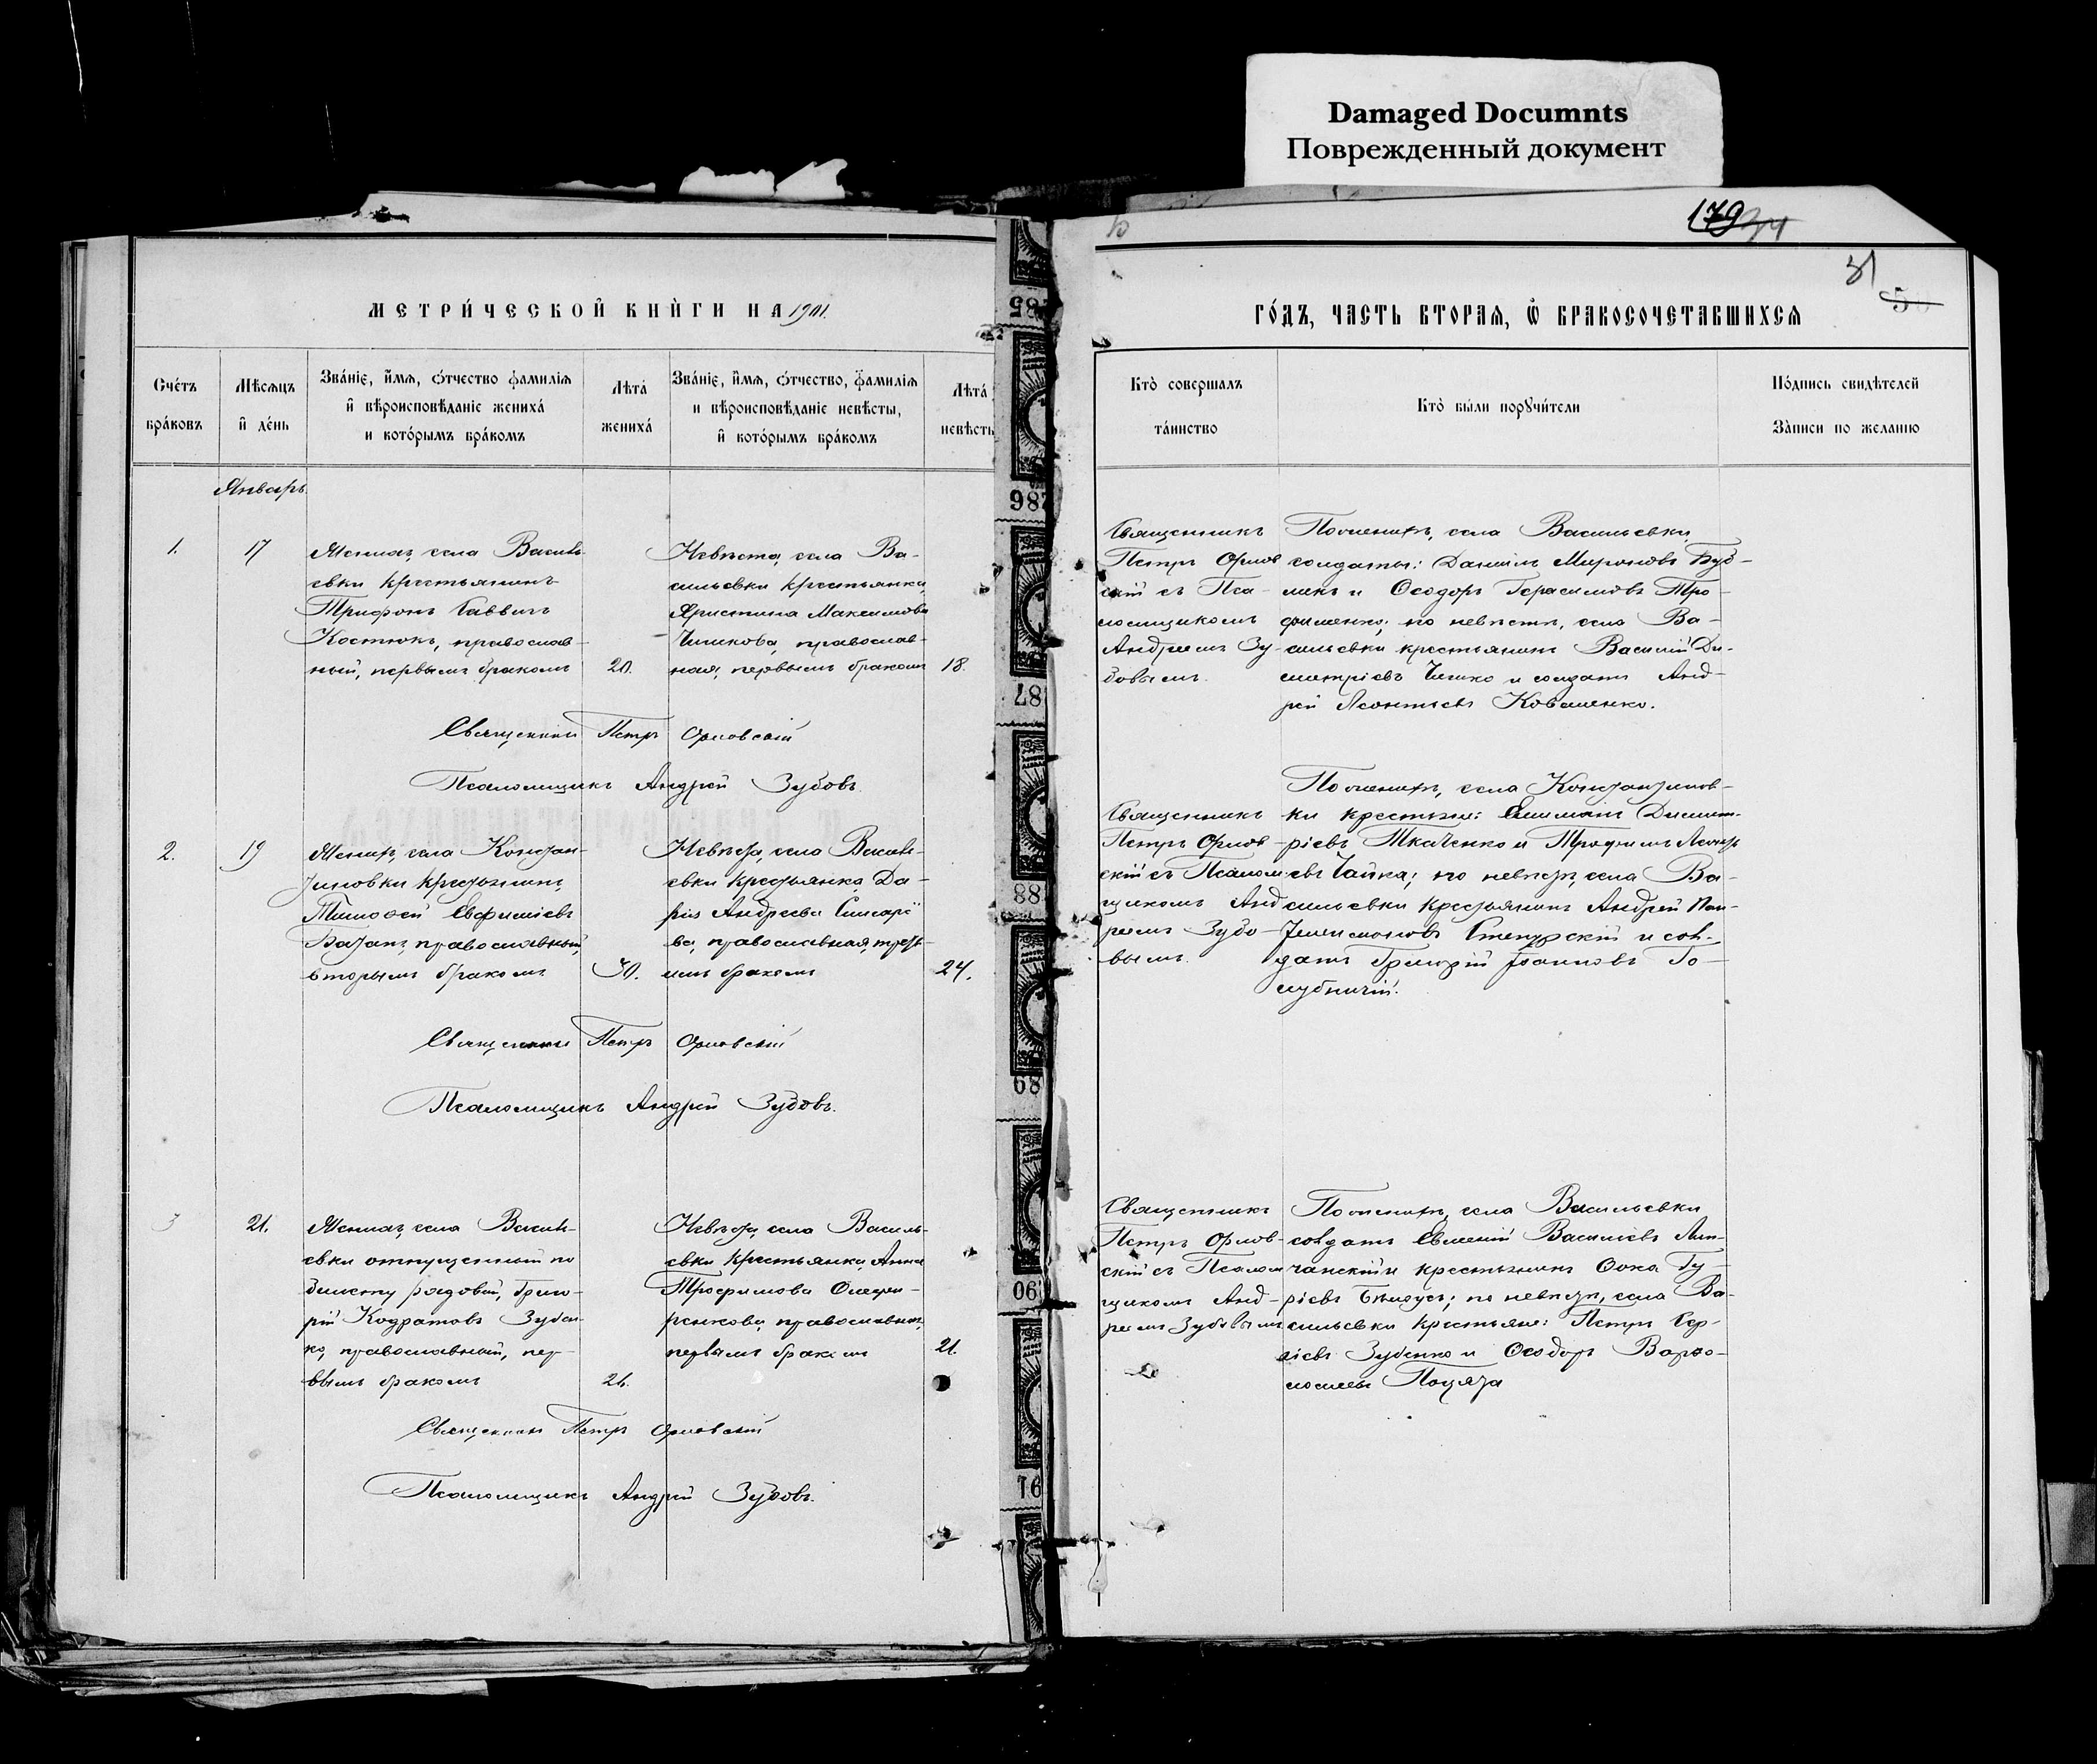 Damaged Documnts
Поврежденный документ
179
31
МЕТРИ́ЧЕСКОЙ КНИ́ГИ НА 1901.
ГО́ДЪ, ЧАСТЬ ВТОРАЯ, Ѡ БРАКОСОЧЕТАВШИХСЯ
Сче́тъ
бра́ковъ
Мѣсяцъ
и де́нь
Зва́нїе, и́мя, ѻ́тчество фами́лїя
и вѣроисповѣ́данїе жениха́
и кото́рымъ бра́комъ
Лѣта́
жениха́
Зва́нїе, и́мя, ѻ́тчество, фами́лїя
и вѣроисповѣ́данїе невѣ́сты,
и кото́рымъ бра́комъ
Лѣта́
невѣсты
Кто̀ соверша́лъ
та́инство
Кто̀ бы́ли порꙋчи́тели
По́дпись свидѣ́телей
За̀писи по жела́нїю
Январь.
1.
17
Женихъ, села Василь-
евки крестьянинъ
Трифонъ Саввинъ
Костюкъ, православ-
ный, первымъ бракомъ
20.
Невѣста, села Ва-
сильевки крестьянка,
Христина Максимова
Чишкова, православ-
ная, первымъ бракомъ
18.
Священникъ
Петръ Орлов
скій съ Пса-
ломщикомъ
Андреемъ Зу-
бовымъ.
По женихѣ, села Васильевки
солдаты: Даніилъ Мироновъ Буд-
никъ и Ѳеодоръ Герасимовъ Тро-
фименко; по невѣстѣ, села Ва-
сильевки крестьянинъ Василій Ди-
митріевъ Чишко и солдатъ Анд-
рей Леонтьевъ Коваленко.
Священникъ Петръ Орловскій
Псаломщикъ Андрей Зубовъ.
2.
19
Женихъ, села Констан-
тиновки крестьянинъ,
Тимоѳей Евфиміевъ
православный,
вторымъ бракомъ
30.
Невѣста, села Василь-
евки крестьянка, Да-
рія Андреева
православная, треть-
имъ бракомъ
24.
Священникъ
Петръ Орлов-
скій съ Псалом-
щикомъ Анд-
реемъ Зубо-
вымъ.
По женихѣ, села Константинов-
ки крестьяне: Димит-
ріевъ Ткаченко и Трофимъ Леонть-
евъ Чайка; по невѣстѣ, села Ва-
сильевки крестьянинъ Андрей Пан-
телеимоновъ и сол-
датъ Григорій Іоанновъ Го-
лубничій.
Священникъ Петръ Орловскій
Псаломщикъ Андрей Зубовъ.
3
21.
Женихъ, села Василь-
евки отпущенный по
билету рядовой, Григо-
рій Кодратовъ Зубен-
ко, православный, пер-
вымъ бракомъ
26.
Невѣста, села Василь-
евки крестьянка, Анна
Трофимова
православная,
первымъ бракомъ
21.
Священникъ
Петръ Орлов-
скій съ Псалом
щикомъ Анд-
реемъ Зубовымъ
По женихѣ, села Васильевки
солдатъ Евменій Василіевъ Лип-
чанскій и крестьянинъ Ѳока Гу-
ріевъ по невѣстѣ, села Ва-
сильевки крестьяне: Петръ Сер-
гіевъ Зубенко и Ѳеодоръ Варѳо-
ломеевъ
Священникъ Петръ Орловскій
Псаломщикъ Андрей Зубовъ.